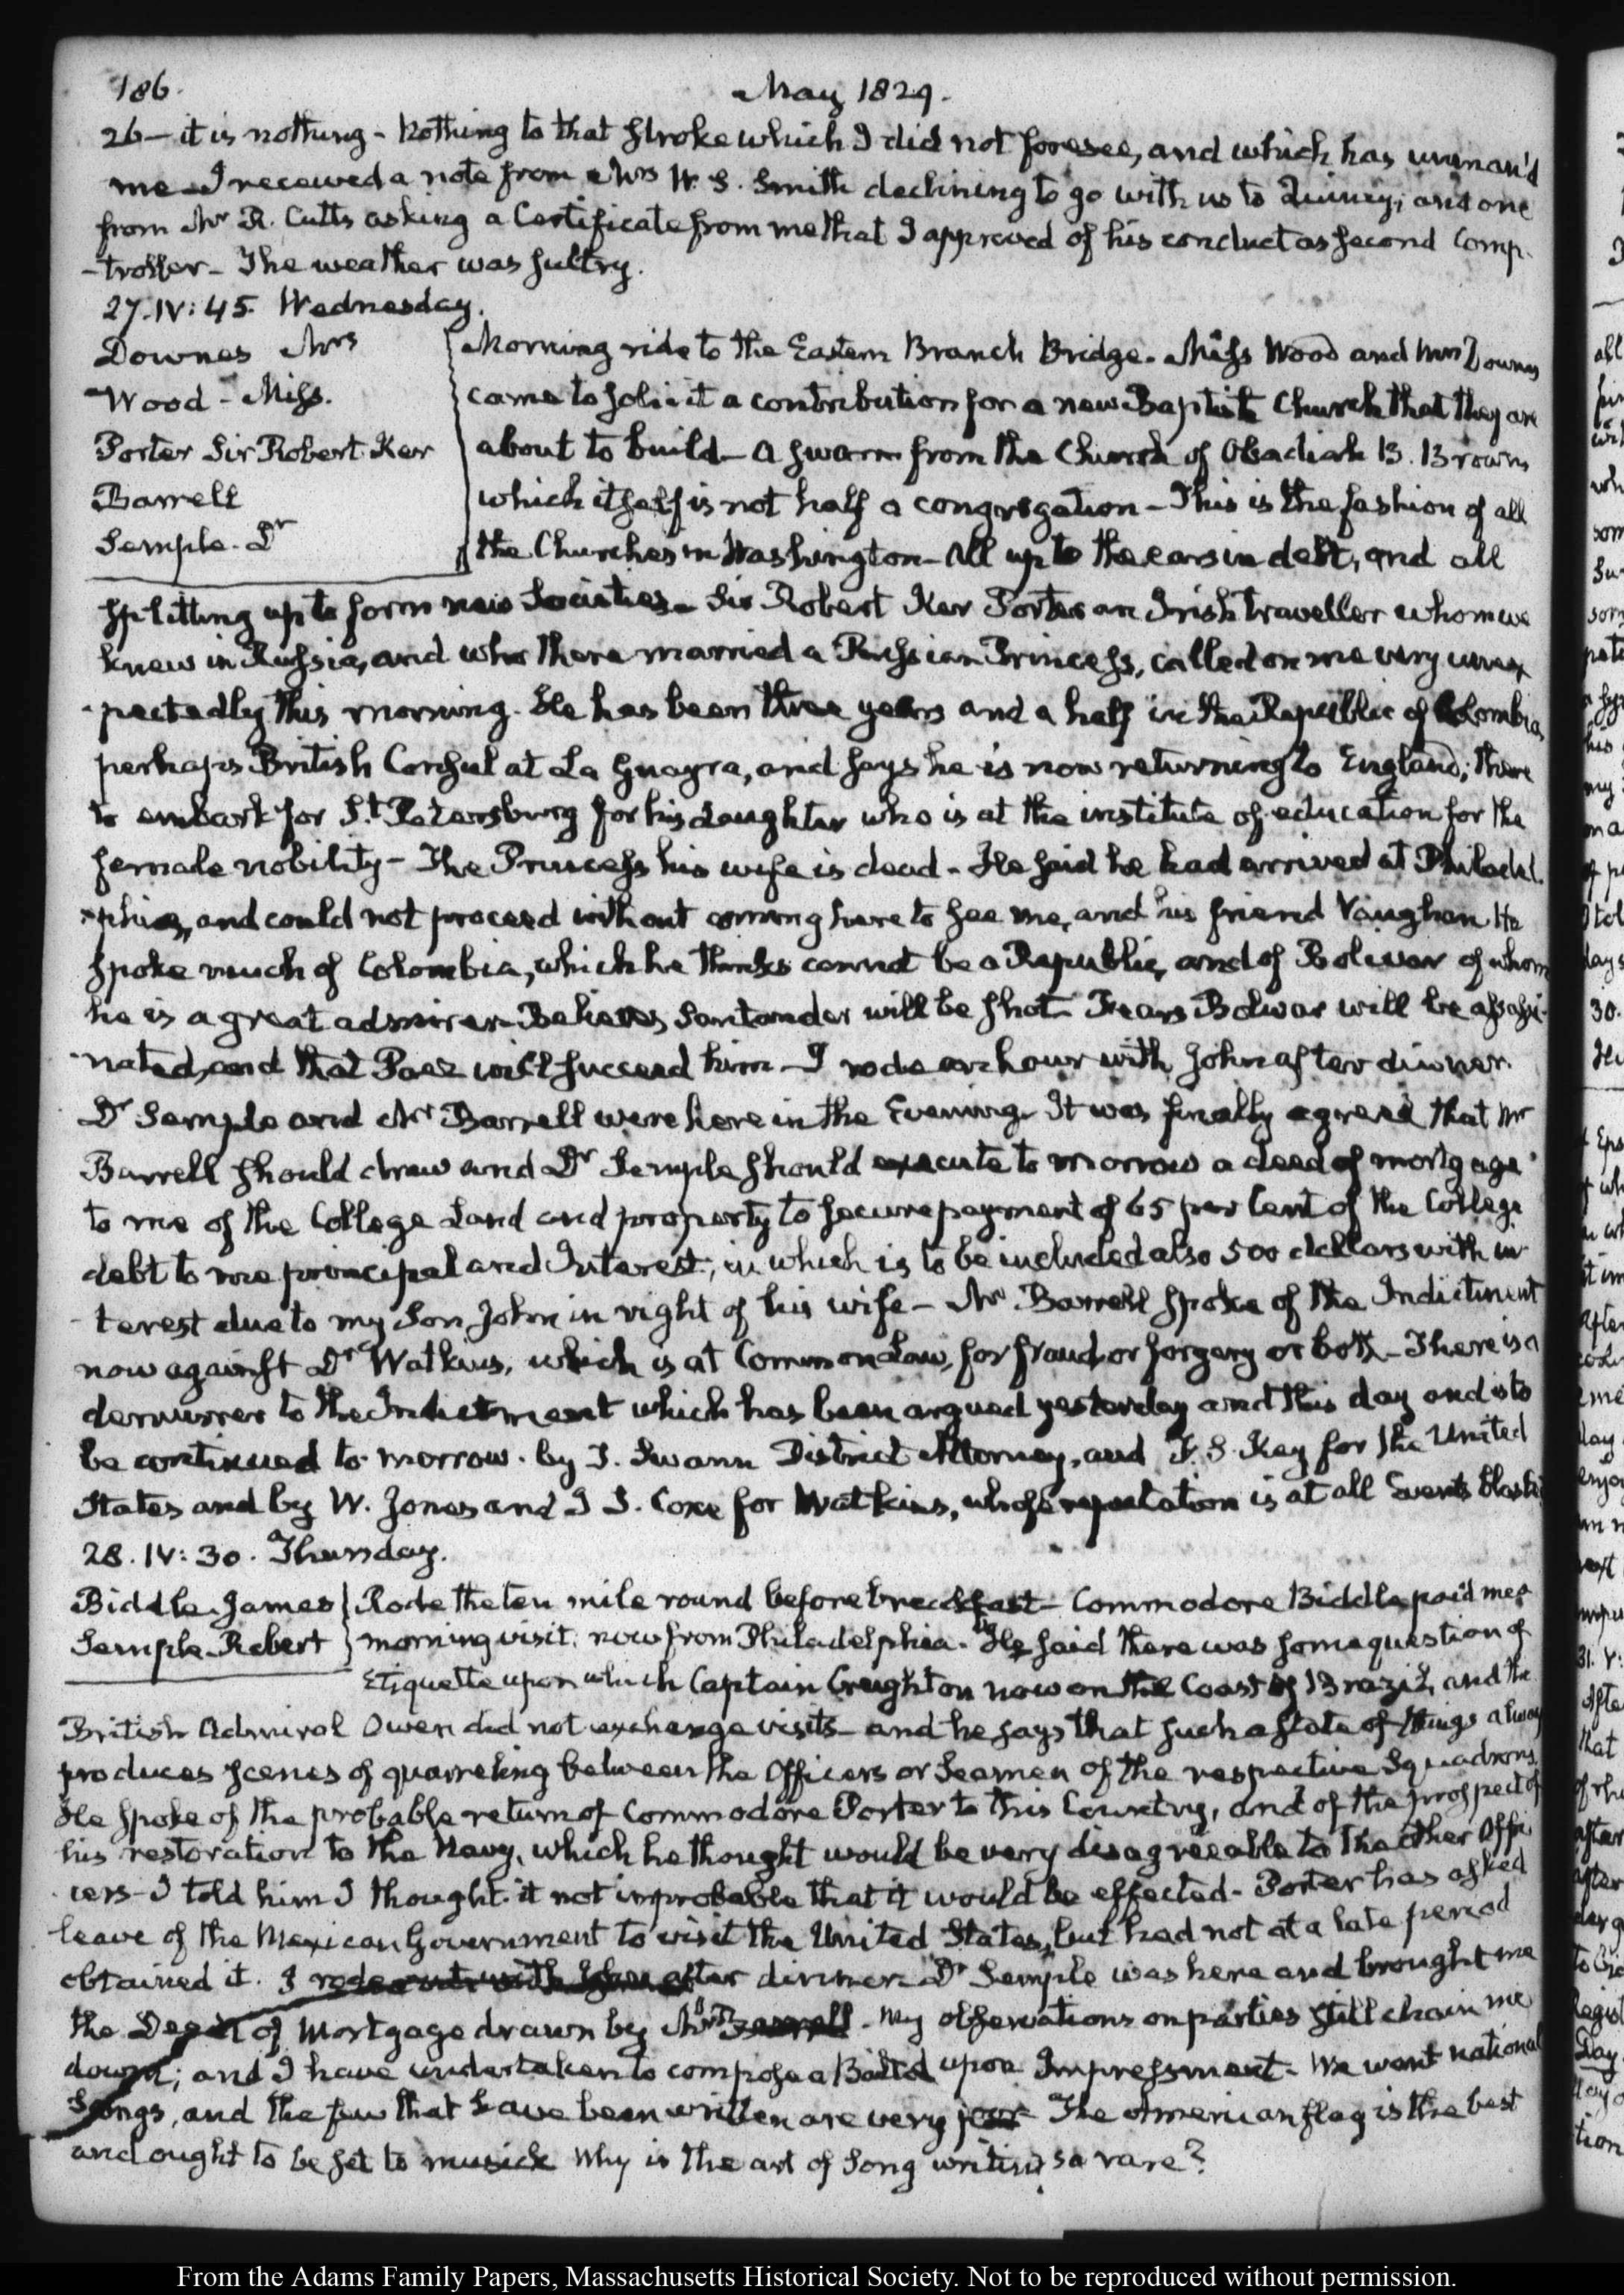 186.
May 1829.
26 — it is nothing - Nothing to that stroke which I did not foresee, and which has unman'd
me — I received a note from Mrs W. S. Smith declining to go with us to Quincy; and one
from Mr R. Cutts asking a Certificate from me that I approved of his conduct as second Comp-
-troller - The weather was sultry.
27. IV: 45. Wednesday.
Downes Mrs
Wood - Miss.
Porter Sir Robert Ker
Barrell
Semple. Dr
Morning ride to the Eastern Branch Bridge. Miss Wood and Mrs Downes
came to solicit a contribution for a new Baptist Church that they are
about to build — a swarm from the Church of Obadiah B. Brown,
which itself is not half a congregation — This is the fashion of all
the Churches in Washington — All up to the ears in debt, and all
splitting up to form new Societies — Sir Robert Ker Porter an Irish traveller whom we
knew in Russia, and who there married a Russian Princess, called on me very unex-
-pectedly this morning. He has been three years and a half in the Republic of Colombia,
perhaps British Consul at La Guayra, and says he is now returning to England; there
to embark for St. Petersburg for his daughter who is at the institute of education for the
female nobility — The Princess his wife is dead. He said he had arrived at Philadel-
-phia, and could not proceed without coming here to see me, and his friend Vaughan He
spoke much of Colombia, which he thinks cannot be a Republic, and of Bolivar of whom
he is a great admirer — Believes Santander will be shot — Fears Bolivar will be assassi-
-nated, and that Paez will succeed him — I rode an hour with John after dinner.
Dr Semple and Mr Barrell were here in the Evening. It was finally agreed that Mr
Barrell should draw and Dr Semple should execute to morrow a deed of mortgage
to me of the College Land and property to secure payment of 65 per Cent of the College
debt to me principal and Interest; in which is to be included also 500 dollars with in-
-terest due to my Son John in right of his wife — Mr Barrell spoke of the Indictment
now against Dr Watkins, which is at Common Law, for fraud, or forgery or both — There is a
demurrer to the Indictment which has been argued yesterday and this day and is to
be continued to morrow. by T. Swann District Attorney, and F. S. Key for the United
States and by W. Jones and R. S. Coxe for Watkins, whose reputation is at all Events blasted
28. IV: 30. Thursday.
Biddle. James
Semple. Robert
Rode the ten mile round before breakfast — Commodore Biddle paid me a
morning visit; now from Philadelphia. He said there was some question of
Etiquette upon which Captain Creighton now on the Coast of Brazil, and the
British Admiral Owen did not exchange visits — and he says that such a state of things always
produces scenes of quarreling between the Officers or Seamen of the respective Squadrons.
He spoke of the probable return of Commodore Porter to this Country, and of the prospect of
his restoration to the Navy, which he thought would be very disagreeable to the other Offi-
-cers — I told him I thought it not improbable that it would be effected — Porter has asked
leave of the Mexican Government to visit the United States, but had not at a late period
obtained it. I rode out with John after dinner. Dr Semple was here and brought me
the Deed of Mortgage drawn by Mr Barrell. My observations on parties still chain me
down; and I have undertaken to compose a Ballad upon Impressment. We want national
Songs, and the few that have been written are very poor — The American flag is the best
and ought to be set to musick Why is the art of Song writing so rare?
From the Adams Family Papers, Massachusetts Historical Society. Not to be reproduced without permission.